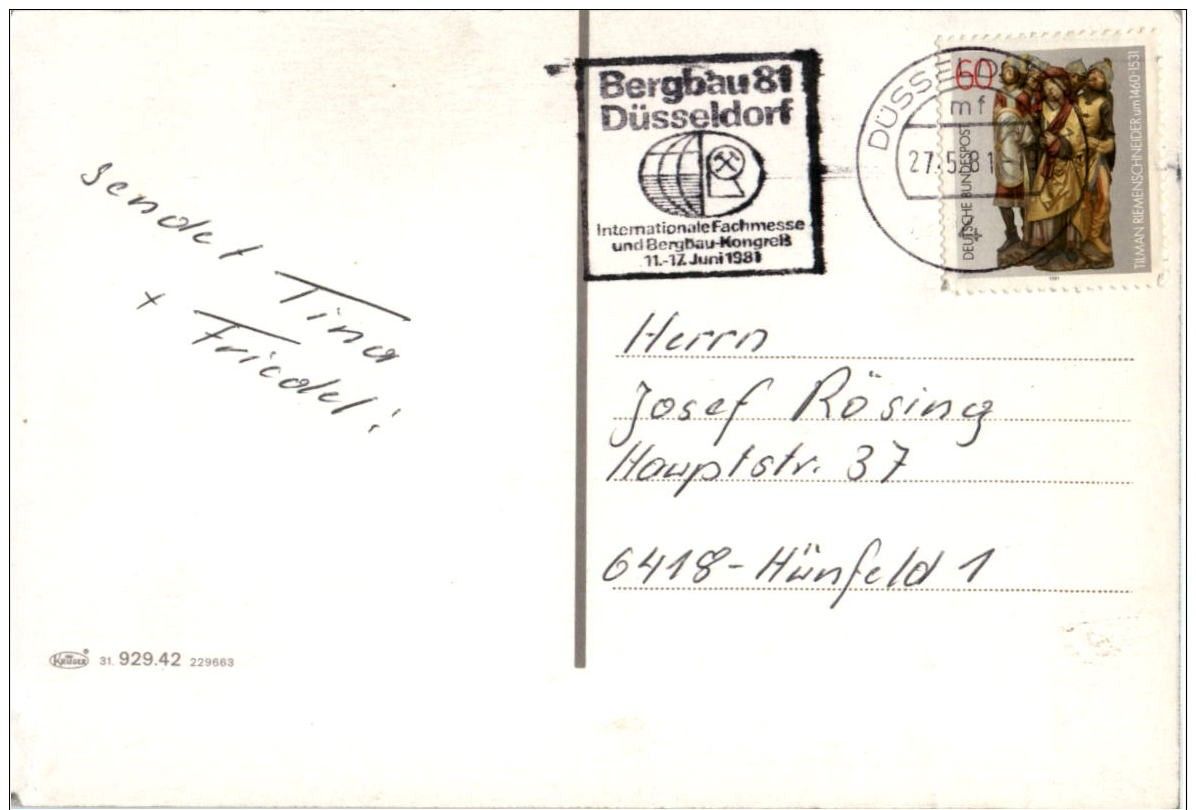 sendet Tina
+ Friedel!
KRÜGER 31. 929.42 229663
Bergbau 81
Düsseldorf
Internationale Fachmesse
und Bergbau-Kongreß
11.-17. Juni 1981
DÜSSEL
mf
27.-5.81
60
DEUTSCHE BUNDESPOST
TILMAN RIEMENSCHNEIDER um 1460-1531
1981
Herrn
Josef Rösing
Hauptstr. 37
6418-Hünfeld 1